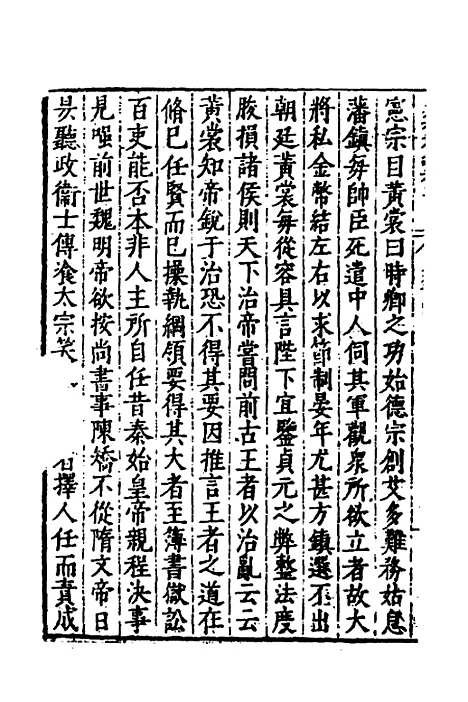 憲宗目黃裳曰時卿之功始德宗創艾多難務姑息
藩鎮每帥臣死遣中人伺其軍觀衆所欲立者故大
將私金幣結左右以求節制晏年尤甚方鎮選不出
朝廷黃裳每從容具言陛下宜鑒貞元之弊整法度
朘損諸侯則天下治帝嘗問前古王者以治亂云云
黃裳知帝銳于治恐不得其要因推言王者之道在
脩已任賢而已操執綱領要得其大者至簿書獄訟
百吏能否本非人主所自任昔秦始皇帝親程决事
見嗤前世魏明帝欲按尚書事陳矯不從隋文帝日
昃聽政衞士傳飱太宗笑擇人任而責成